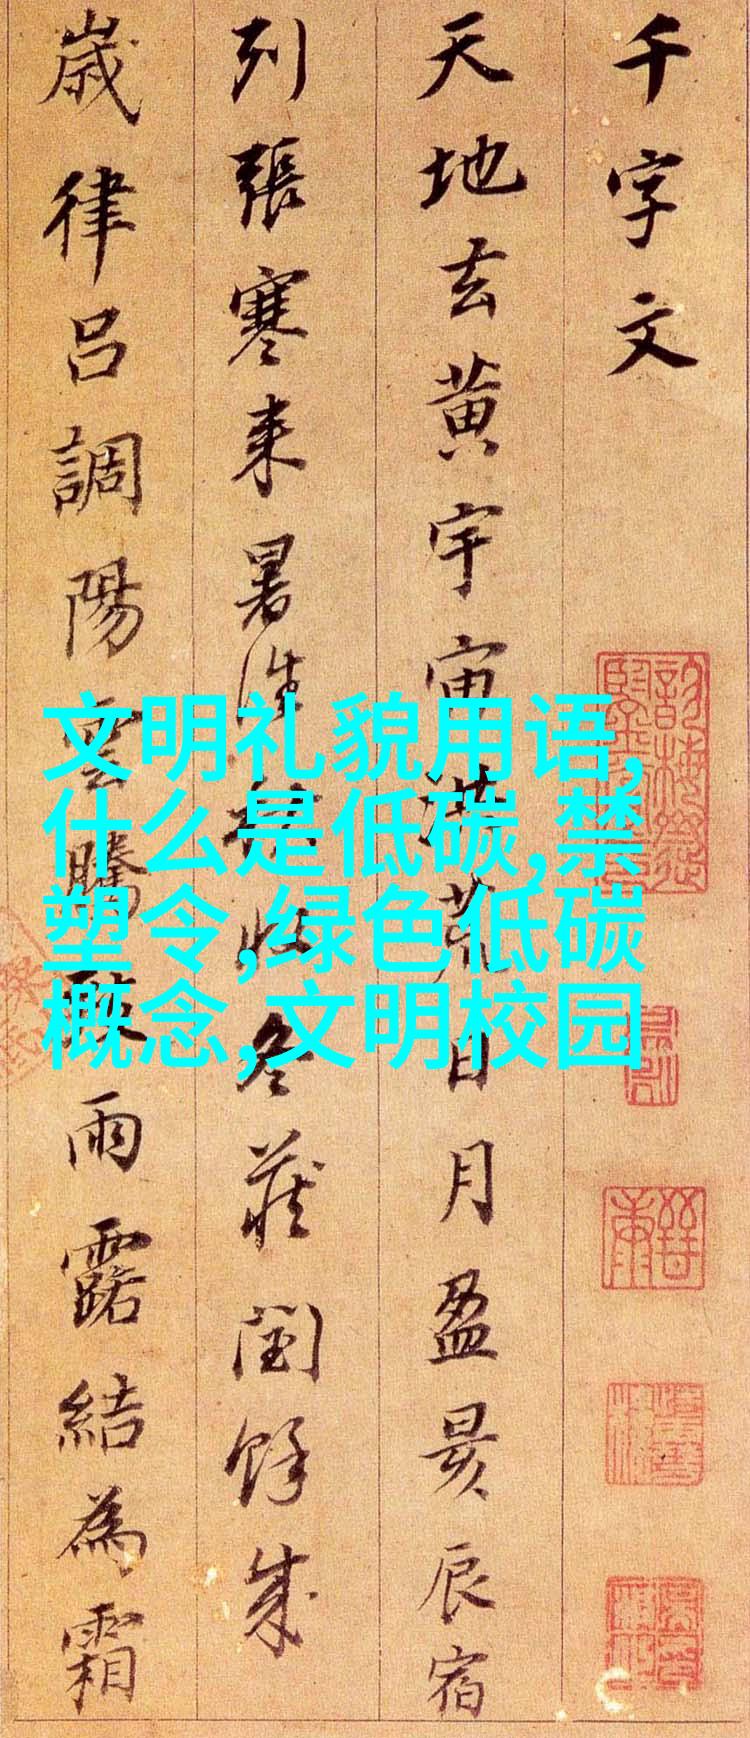 千字文
天地玄黄宇宙洪荒日月盈昃辰宿
列張寒来暑往秋收冬蔵閏餘成
歳律吕調陽雲騰致雨露結為霜
文明礼貌用语,
什么是低碳,禁
塑令,绿色低碳
概念,文明校园